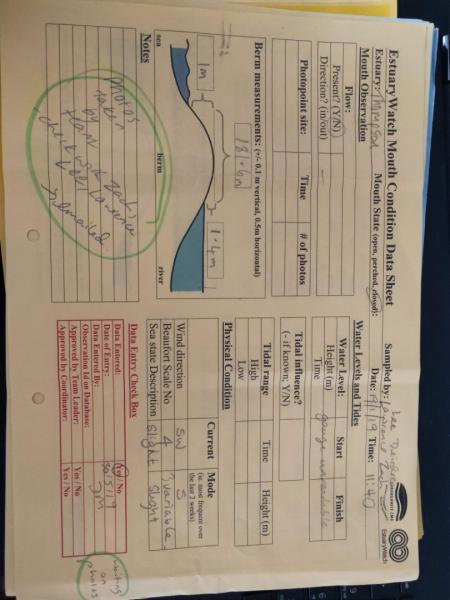 EstuaryWatch Mouth Condition Data Sheet
EstuaryWatch
Estuary: Thompson Mouth State (open, perched, closed):
Sampled by: Lee Deirdre
Lawrence Zach
Date: 19/1/19 Time: 11:40
Mouth Observation
Flow:
Present? (Y/N)
Direction? (in/out)
Photopoint site: Time # of photos
Berm measurements: (+/- 0.1 m vertical, 0.5m horizontal)
18.6m
1m
1.4m
sea berm river
Notes
photos
taken
by
Lawrence
check
Water Levels and Tides
Water Level: Start Finish
Height (m) gauge unreadable
Time
Tidal influence?
(- if known; Y/N)
Tidal range Time Height (m)
High
Low
Physical Condition
Current Mode
(ie. most frequent over
the last 2 weeks)
Wind direction SW S
Beaufort Scale No 4 ?variable
Sea state Description slight slight
Data Entry Check Box
Data Entered: Yes / No
Date of Entry: 30/5/19
Data Entered By: JM
Observation Id on Database:
Approved by Team Leader: Yes / No
Approved by Coordinator: Yes / No
waiting
on
photos